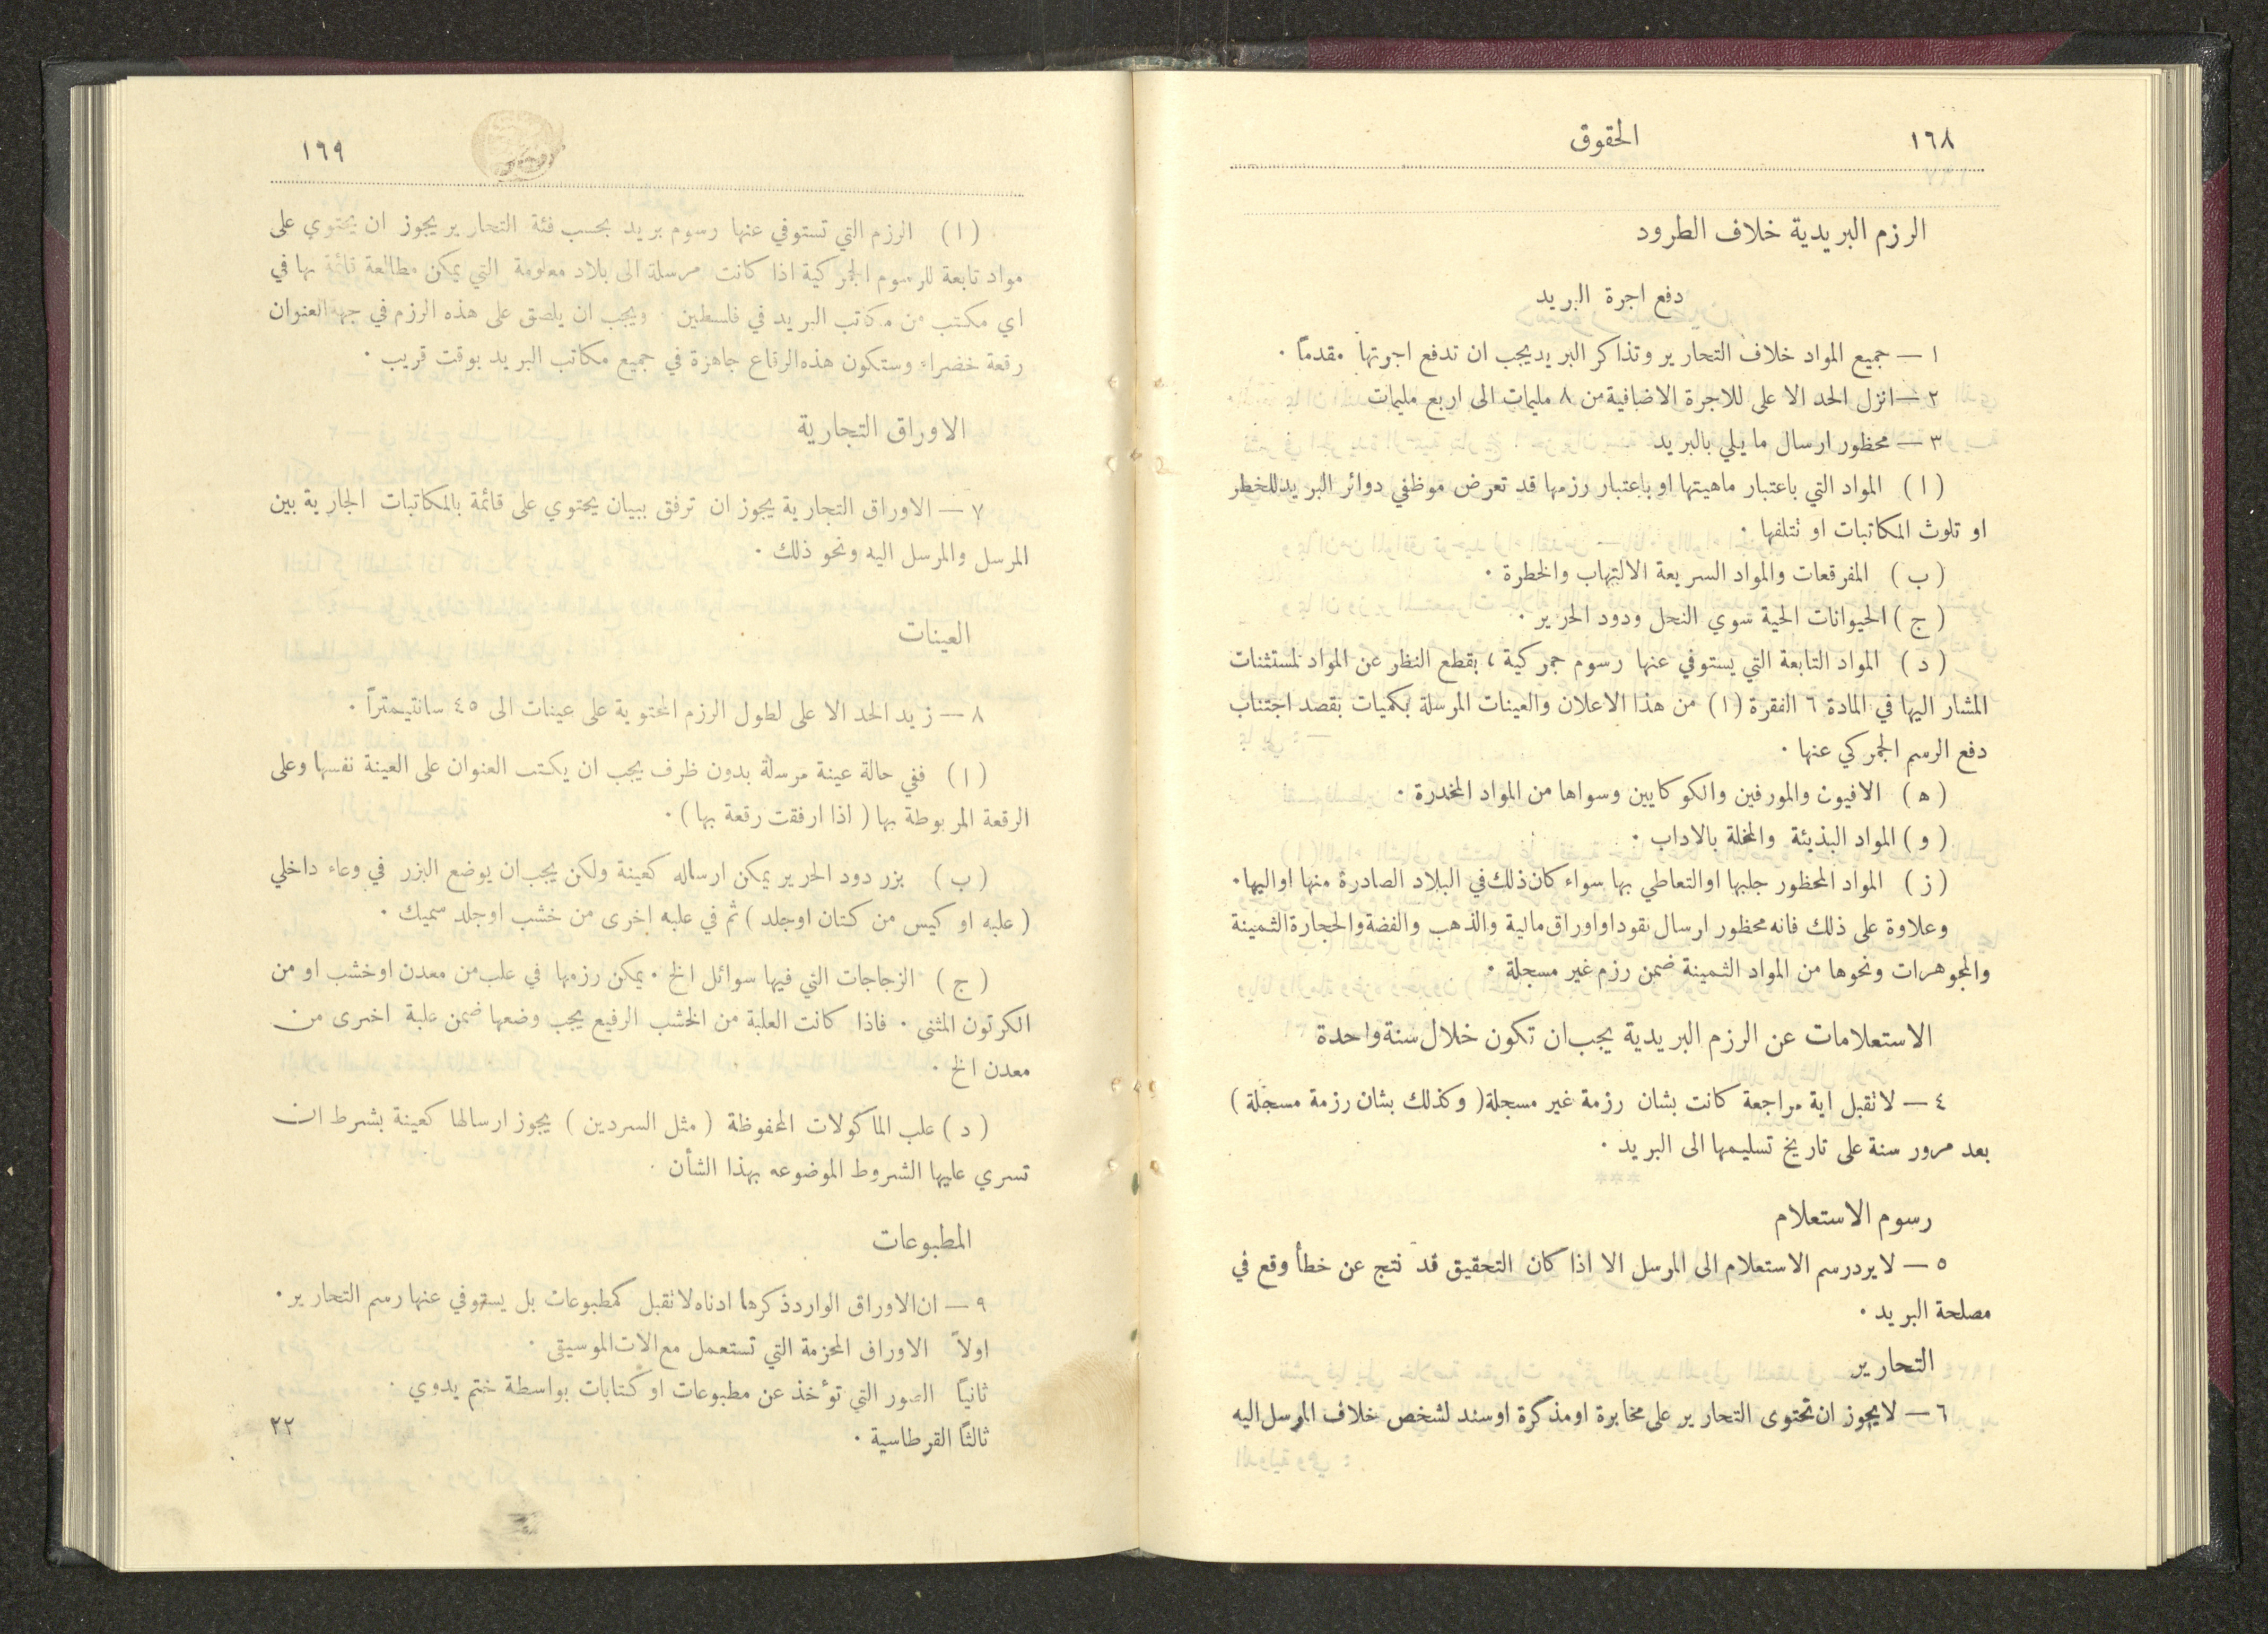 ١٦٨
الحقوق
الرزم البريدية خلاف الطرود
دفع اجرة البريد
١ — جميع المواد خلاف التحارير وتذاكر البريد يجب ان تدفع اجرتها مقدماً ·
٢ — انزل الحد الاعلى للاجرة الاضافية من ٨ مليمات الى اربع مليمات
٣ — محظور ارسال ما يلي بالبريد
( ا ) المواد التي باعتبار ماهيتها او باعتبار رزمها قد تعرض موظفي دوائر البريد للخطر
او تلوث المكاتبات او نتلفها ·
( ب ) المفرقعات والمواد السريعة الالتهاب والخطرة ·
( ج ) الحيوانات الحية سوي النحل ودود الحرير ·
( د ) المواد التابعة التي يستوفي عنها رسوم جمركية ، بقطع النظر عن المواد لمستثنات
المشار اليها في المادة ٦ الفقرة (١) من هذا الاعلان والعينات المرسلة بكميات بقصد اجتناب
دفع الرسم الجمركي عنها ·
( ه ) الافيون والمورفين والكوكايين وسواها من المواد المخدرة ·
( و ) المواد البذيئة والمخلة بالاداب ·
( ز ) المواد المحظور جلبها او التعاطي بها سواء كان ذلك في البلاد الصادرة منها او اليها ·
وعلاوة على ذلك فانه محظور ارسال نقود او اوراق مالية والذهب والفضة والحجارة الثمينة
والمجوهرات ونحوها من المواد الثمينة ضمن رزم غير مسجلة ·
الاستعلامات عن الرزم البريدية يجب ان تكون خلال سنة واحدة
٤ — لا نقبل اية مراجعة كانت بشان رزمة غير مسجلة ( وكذلك بشان رزمة مسجلة )
بعد مرور سنة على تاريخ تسليمها الى البريد ·
رسوم الاستعلام
٥ — لا يرد رسم الاستعلام الى المرسل الا اذا كان التحقيق قد نتج عن خطأ وقع في
مصلحة البريد ·
التحارير
٦ — لا يجوز ان تحتوى التحارير على مخابرة او مذكرة او سند لشخص خلاف المرسل اليه
١٦٩
( ا ) الرزم التي تستوفي عنها رسوم بريد بحسب فئة التحارير يجوز ان يحتوي على
مواد تابعة للرسوم الجمركية اذا كانت مرسلة الى بلاد معلومة التي يمكن مطالعة قائمة بها في
اي مكتب من مكاتب البريد في فلسطين · ويجب ان يلصق على هذه الرزم في جهة العنوان
رقعة خضراء وستكون هذه الرقاع جاهزة في جميع مكاتب البريد بوقت قريب ·
الاوراق التجارية
٧ — الاوراق التجارية يجوز ان ترفق ببيان يحتوي على قائمة بالمكاتبات الجارية بين
المرسل والمرسل اليه ونحو ذلك ·
العينات
٨ — زيد الحد الاعلى لطول الرزم المحتوية على عينات الى ٤٥ سانتيمتراً ·
( ا ) ففي حالة عينة مرسلة بدون ظرف يجب ان يكتب العنوان على العينة نفسها وعلى
الرقعة المربوطة بها ( اذا ارفقت رقعة بها ) ·
( ب ) بزر دود الحرير يمكن ارساله كعينة ولكن يجب ان يوضع البزر في وعاء داخلي
( علبه او كيس من كتان او جلد ) ثم في علبه اخرى من خشب او جلد سميك ·
( ج ) الزجاجات التي فيها سوائل الخ · يمكن رزمها في علب من معدن او خشب او من
الكرتون المثنى · فاذا كانت العلبة من الخشب الرفيع يجب وضعها ضمن علبة اخرى من
معدن الخ ·
( د ) علب الماكولات المحفوظة ( مثل السردين ) يجوز ارسالها كعينة بشرط ان
تسري عليها الشروط الموضوعه بهذا الشأن ·
المطبوعات
٩ — ان الاوراق الوارد ذكرها ادناه لا نقبل كمطبوعات بل يستوفي عنها رسم التحارير ·
اولاً الاوراق المخزمة التي تستعمل مع الات الموسيقى ·
ثانياً الصور التي تؤخذ عن مطبوعات او كتابات بواسطة ختم يدوي ·
ثالثاً القرطاسية ·
٢٢